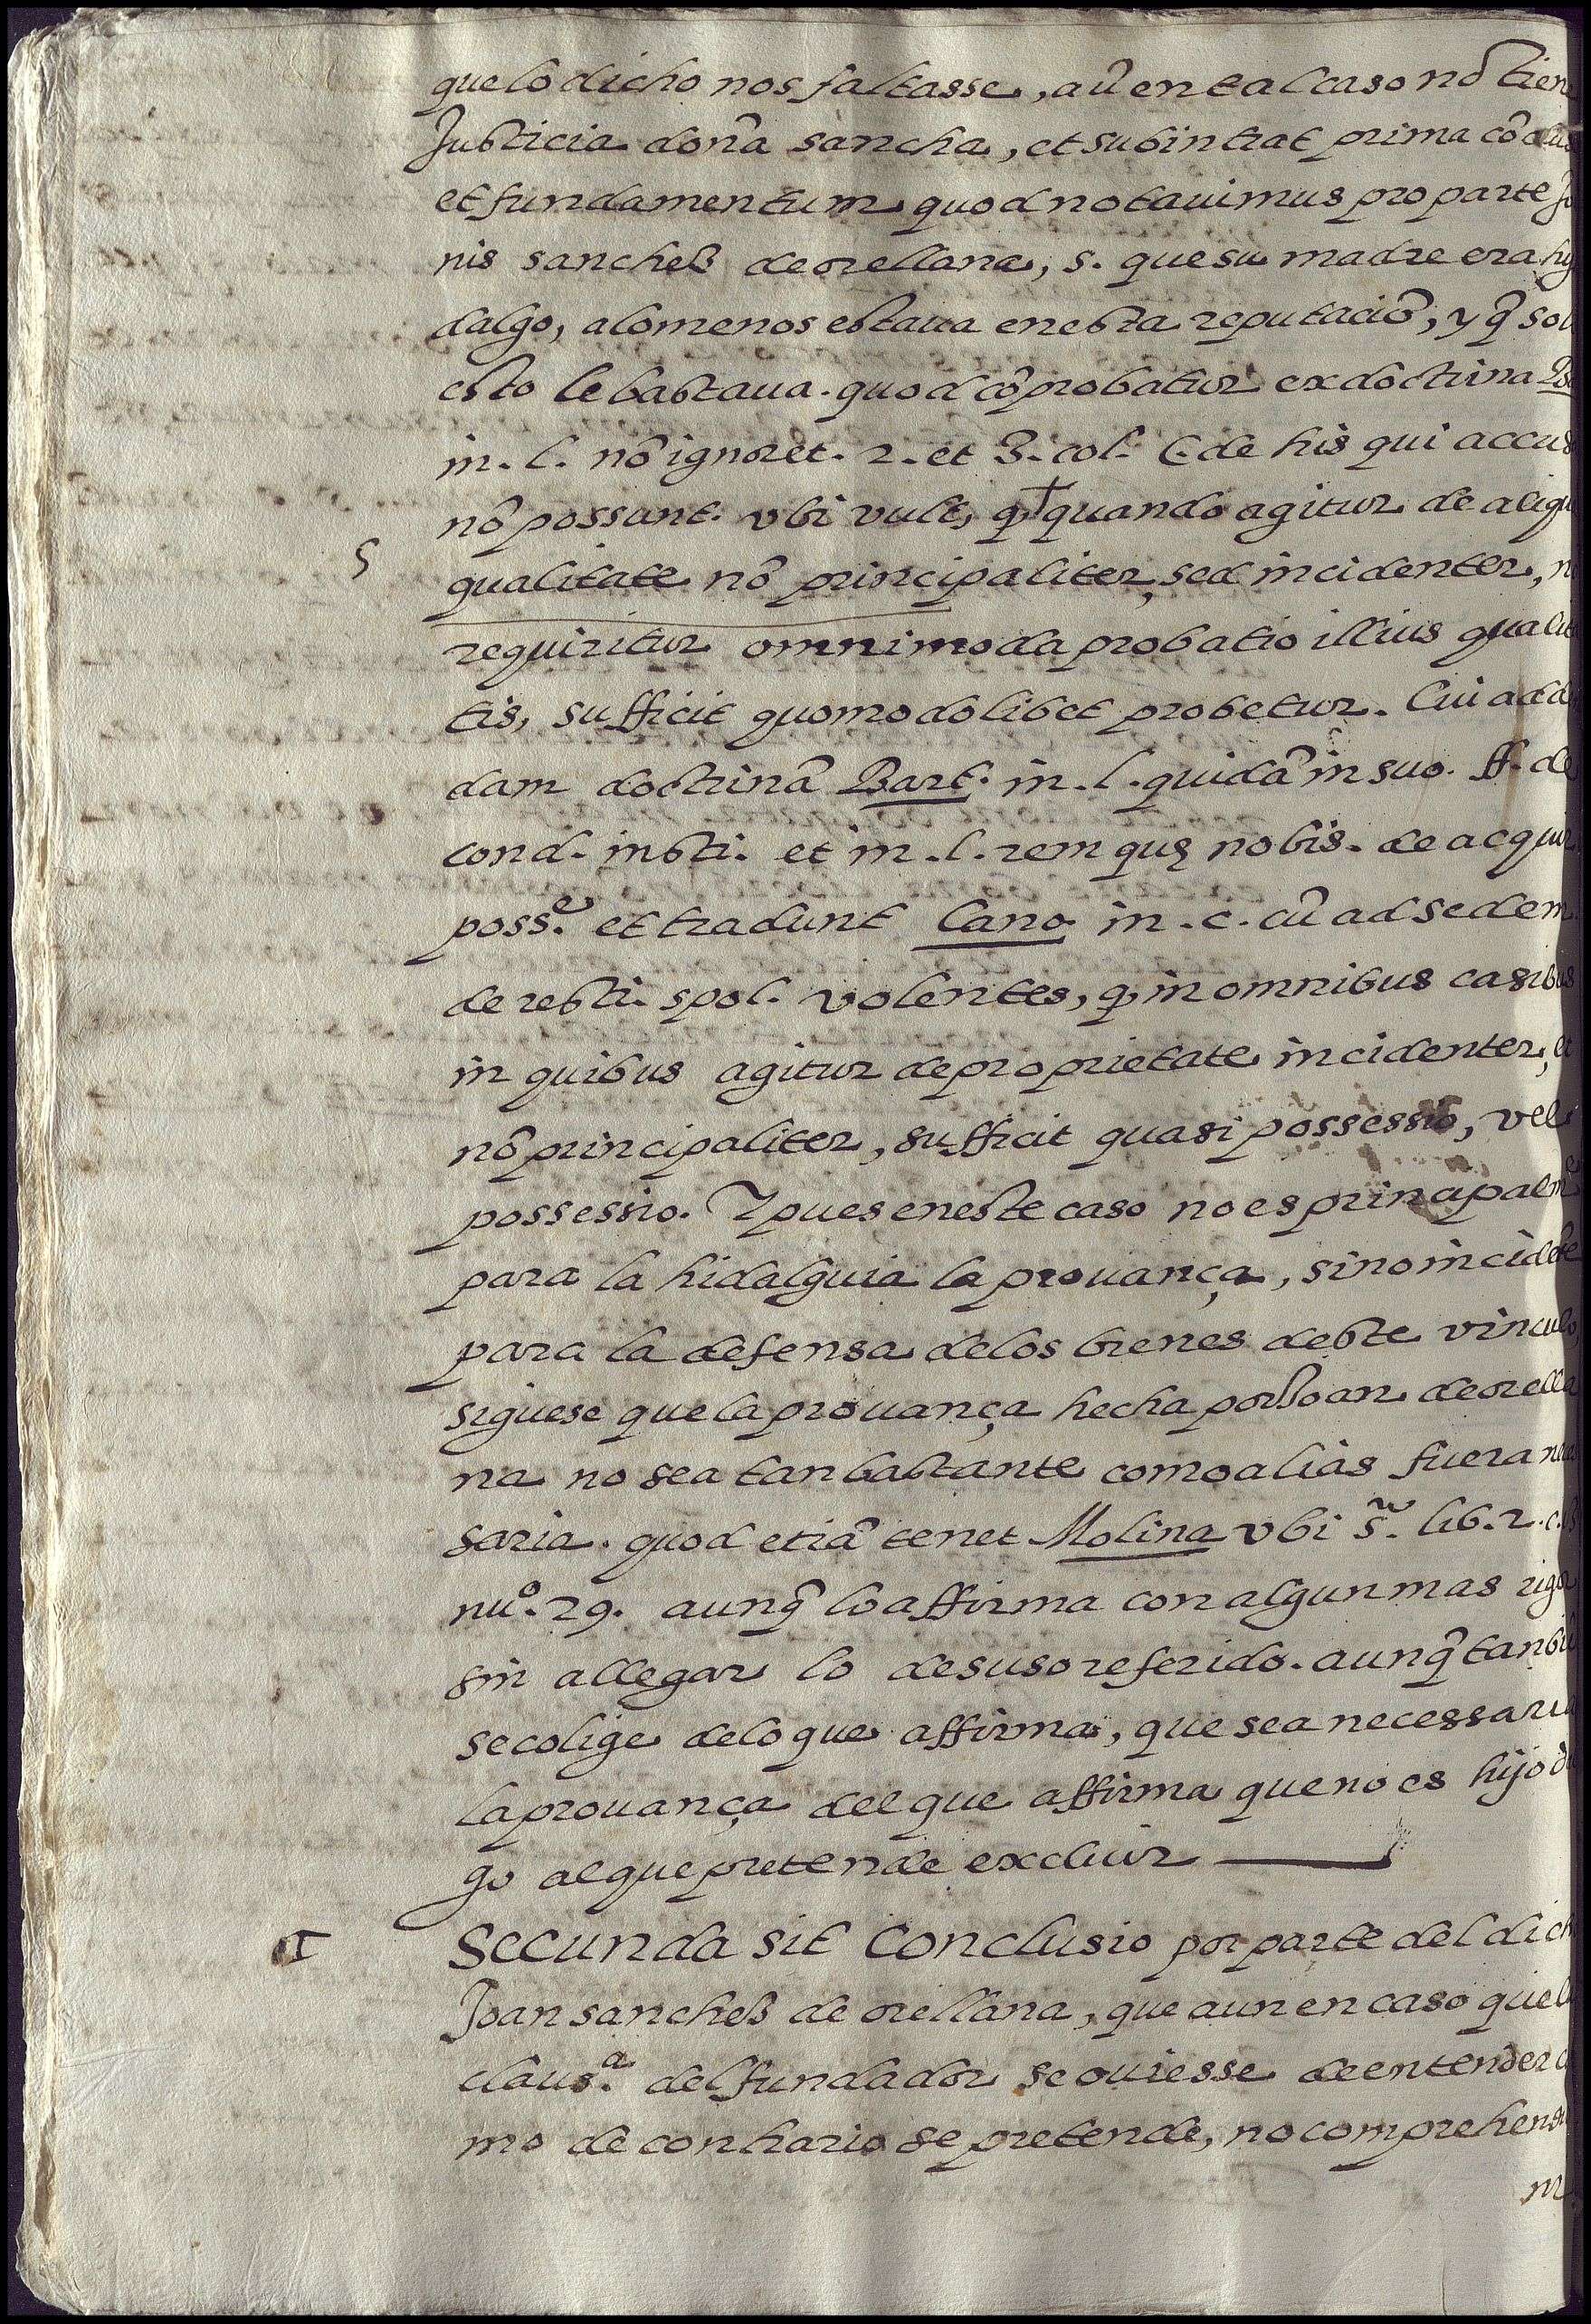 que lo dicho nos faltasse, aũ en tal caso no tiene
Justicia doña sancha, et subintrat prima cõclus
et fundamentum quod notauimus pro parte Jo
nis sanchez de orellana, s. que su madre era hij
dalgo, alomenos estaua en esta reputaciõ, y q̃ solo
esto le bastaua. quod cõprobatur ex doctrina
in. l. nõ ignoret. 2. et 3. col. C. de his qui accus
nõ possunt. vbi vult, q̃ † quando agitur de aliqu
5 qualitate nõ principaliter, sed incidenter, n
requiritur omnimoda probatio illius qualit
tis, sufficit quomodolibet probetur. Cui adde
dam doctrinã Bart. in. l. quidã in suo. ff. de
cond. insti. et in. l. rem quę nobis. de acquir.
poss.e et tradunt Cano. in. c. cũ ad sedem.
de resti. spol. volentes, q̃ in omnibus casibus
in quibus agitur de proprietate incidenter, et
nõ principaliter, sufficit quasi possessio, vel
possessio. Y pues en este caso no es principalmẽ
para la hidalguia la prouança, sino incidẽte
para la defensa de los bienes deste vinculo,
siguese que la prouança hecha por Joan de orella
na no sea tan bastante como alias fuera nece
saria. quod etiã tenet Molina vbi s.̃ lib. 2. c.
nu.o 29. aunq̃ lo affirma con algun mas rigor
sin allegar lo de suso referido. aunq̃ tanbiẽ
se colige de lo que affirma, que sea necessaria
la prouança del que affirma que no es hijo d
go al que pretende excluir
SECUNDA sit conclusio por parte del dich
Joan sanchez de orellana, que aun en caso que l
claus.a del fundador se ouiesse de entender c
mo de contrario se pretende, no comprehend